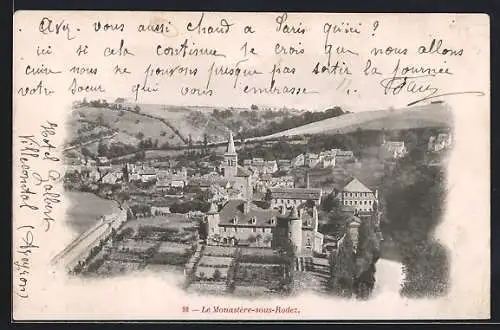 avez vous aussi chaud a Paris qu'ici ?
ici si cela continue je crois que nous allons
cuire nous ne pouvons presque pas sortir la journée
votre Soeur qui vous embrasse
Hotel Jalbert
Villecomtal
(Aveyron)
88 — Le Monastère-sous-Rodez.